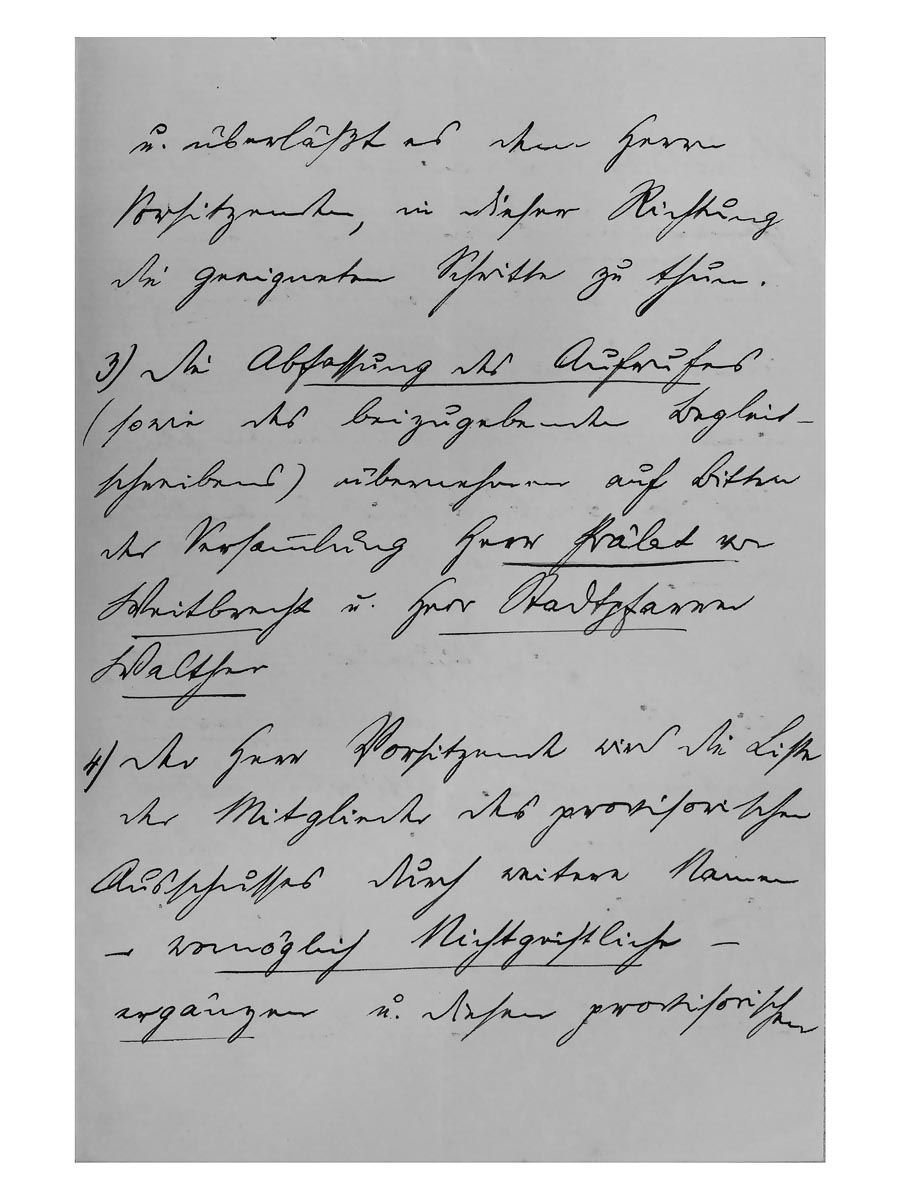 u. überläßt es dem Herrn
Vorsitzenden, in dieser Richtung
die geeigneten Schritte zu thun.
3) Die Abfassung des Aufrufes
(sowie des beizugebenden Begleit-
schreibens) übernehmen auf Bitten
der Versammlung Herr Prälat von
Weitbrecht u. Herr Stadtpfarrer
Walther
4) Der Herr Vorsitzende wird die Liste
der Mitglieder des provisorischen
Ausschusses durch weitere Namen
– womöglich Nichtgeistliche –
ergänzen u. diesen provisorischen